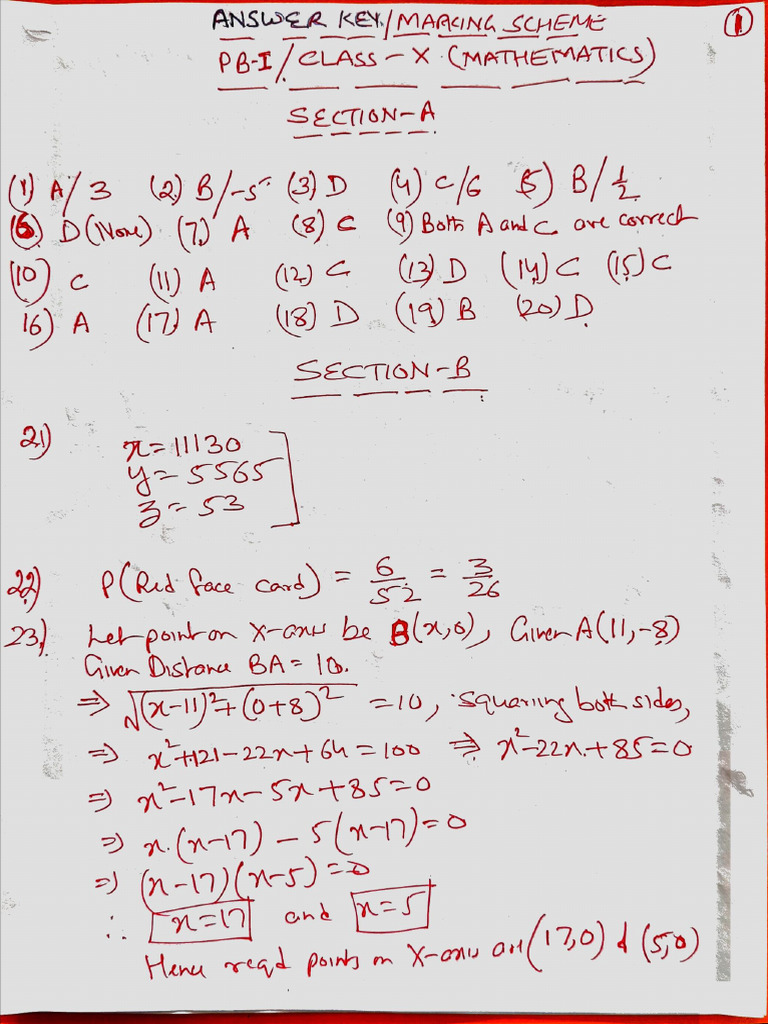 ANSWER KEY/MARKING SCHEME
①
PB-I/CLASS-X (MATHEMATICS)
SECTION-A
(1) A/3 (2) B/-5 (3) D (4) C/6 (5) B/½
(6) D(None) (7) A (8) C (9) Both A and C are correct
(10) C (11) A (12) C (13) D (14) C (15) C
16) A (17) A (18) D (19) B (20) D
SECTION-B
21) x=11130
y=5565
z=53
22) P(Red face card) = 6/52 = 3/26
23) Let point on X-axis be B(x,0), Given A(11,-8)
Given Distance BA=10.
⇒ √((x-11)²+(0+8)²) =10, Squaring both sides,
⇒ x²+121-22x+64=100 ⇒ x²-22x+85=0
⇒ x²-17x-5x+85=0
⇒ x.(x-17)-5(x-17)=0
⇒ (x-17)(x-5)=0
∴ x=17 and x=5
Hence reqd points on X-axis are (17,0) & (5,0)